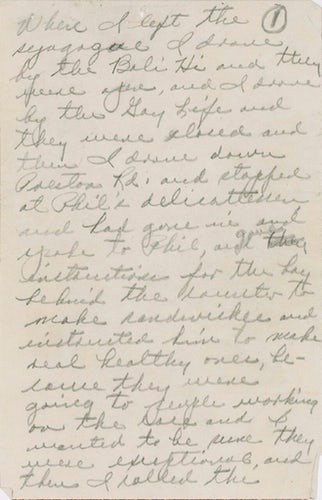 ①
When I left the
synagogue I drove
by the Bali Hi and they
were open, and I drove
by the Gay Life and
they were closed and
then I drove down
Preston Rd. and stopped
at Phil's delicatessen
and had gone in and
spoke to Phil, and gave
instructions for the boy
behind the counter to
make sandwiches and
instructed him to make
real healthy ones, be-
cause they were
going to people working
on the case and I
wanted to be sure they
were exceptional, and
then I called the